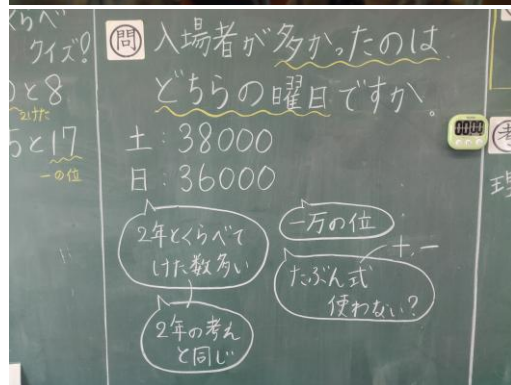 らべ
クイズ!
と8
2けた
5と17
一の位
問 入場者が多かったのは
どちらの曜日ですか。
土:38000
日:36000
2年とくらべて
けた数多い
2年の考え
と同じ
一万の位
+,-
たぶん式
使わない?
考